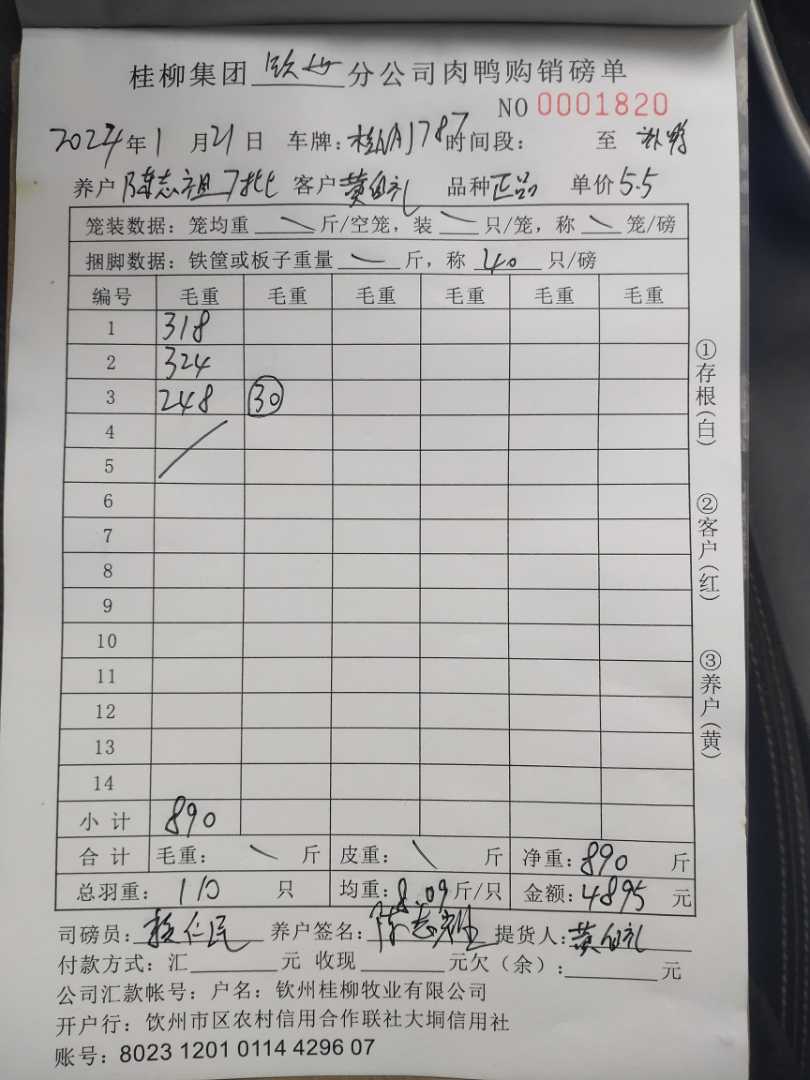 桂柳集团 钦州 分公司肉鸭购销磅单
NO 0001820
2024年1月21日 车牌: 时间段: 至
养户 陈志祖 7批 客户 黄自礼 品种 正品 单价 5.5
笼装数据：笼均重 \ 斤/空笼，装 \ 只/笼，称 \ 笼/磅
捆脚数据：铁筐或板子重量 \ 斤，称 40 只/磅
编号 毛重 毛重 毛重 毛重 毛重 毛重
1 318
2 324
3 248 30
4
5
6
7
8
9
10
11
12
13
14
小计 890
合计 毛重： \ 斤 皮重： \ 斤 净重：890 斤
总羽重： 110 只 均重：8.09斤/只 金额：4895 元
司磅员： 仁民 养户签名：陈志祖 提货人：黄自礼
付款方式：汇 元 收现 元欠（余）： 元
公司汇款帐号：户名：钦州桂柳牧业有限公司
开户行：饮州市区农村信用合作联社大垌信用社
账号：8023 1201 0114 4296 07
①存根(白)
②客户(红)
③养户(黄)